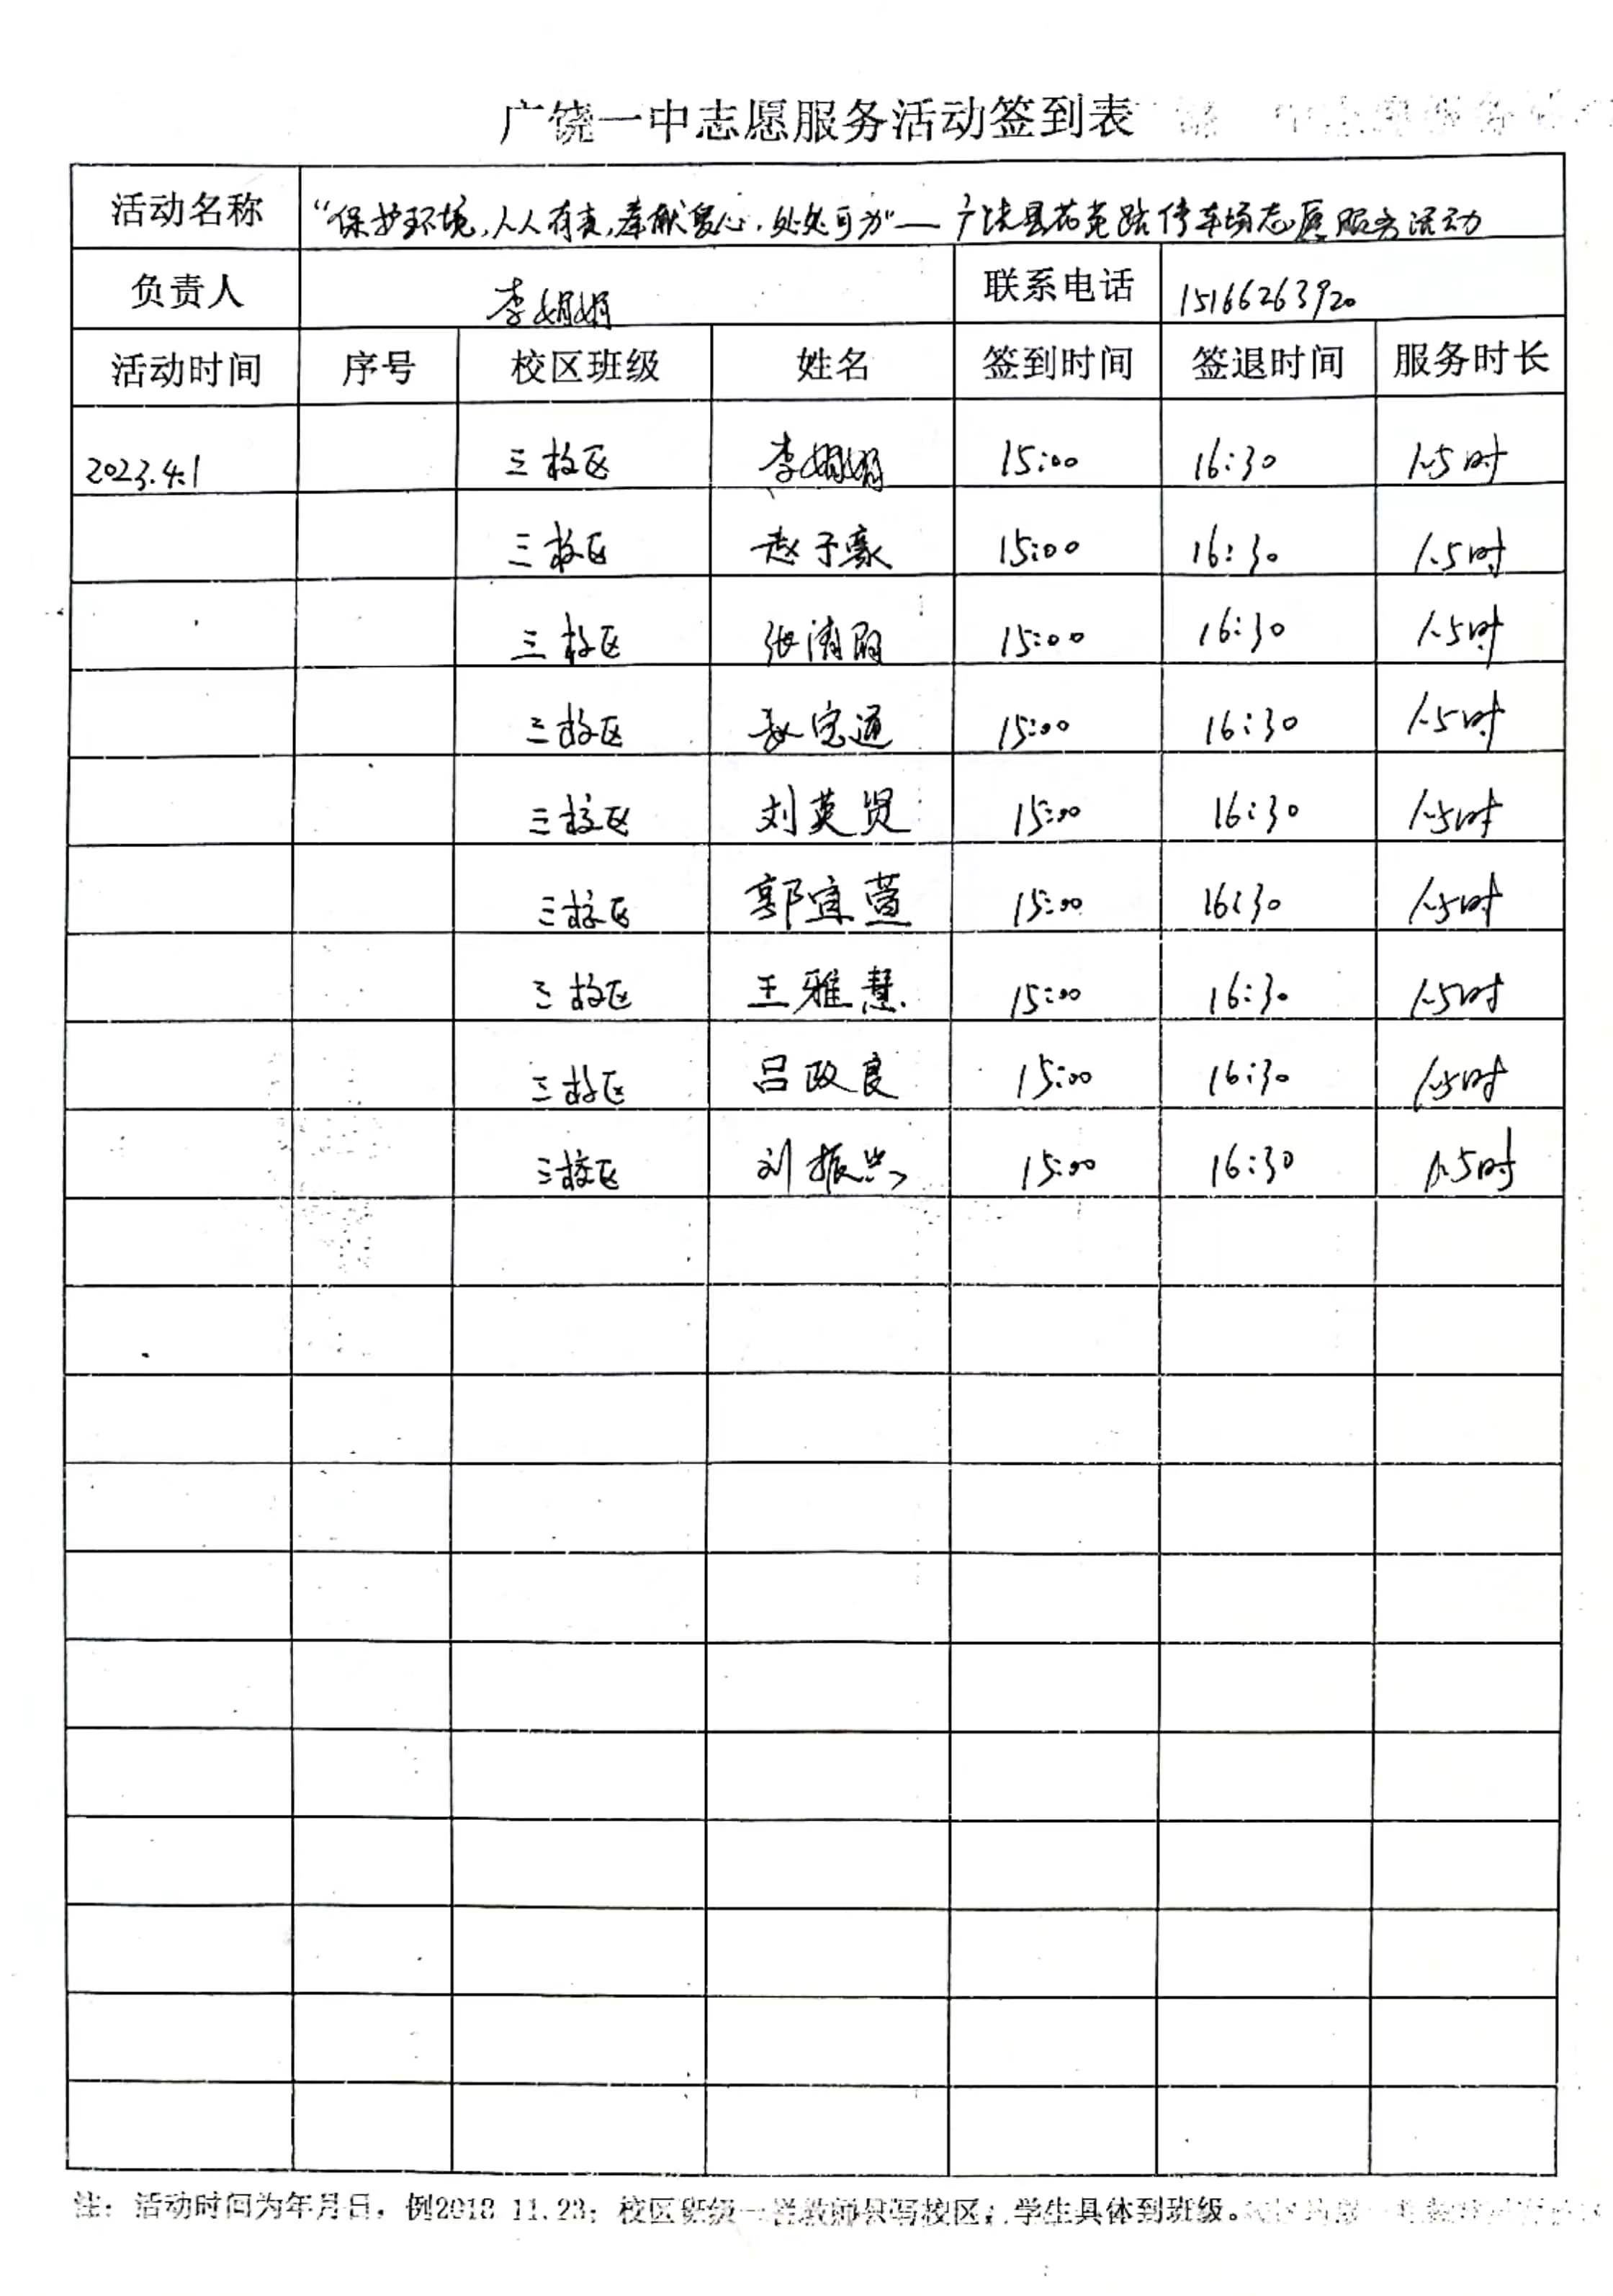 广饶一中志愿服务活动签到表
活动名称 "保护环境,人人有责,奉献爱心,处处可为"——广饶县花苑路停车场志愿服务活动
负责人 李娟娟 联系电话 15166263920
活动时间 序号 校区班级 姓名 签到时间 签退时间 服务时长
2023.4.1 三校区 李娟娟 15:00 16:30 1.5时
三校区 赵子豪 15:00 16:30 1.5时
三校区 张清 15:00 16:30 1.5时
三校区 通 15:00 16:30 1.5时
三校区 刘英贤 15:00 16:30 1.5时
三校区 郭宜萱 15:00 16:30 1.5时
三校区 王雅慧 15:00 16:30 1.5时
三校区 吕政良 15:00 16:30 1.5时
三校区 刘振兴 15:00 16:30 1.5时
注:活动时间为年月日,例2018 11.23;校区班级一栏教师只写校区;学生具体到班级。